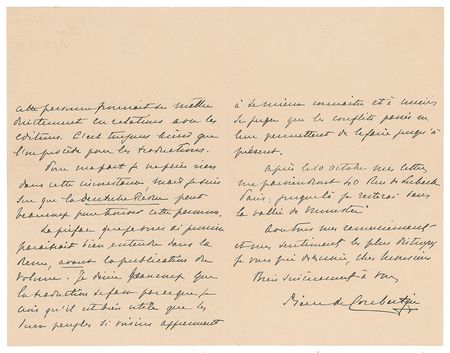 cette personne pourrait se mettre
directement en relations avec les
éditeurs. C'est toujours ainsi que
l'on procède pour les traductions.
Pour ma part je ne puis rien
dans cette circonstance, mais je suis
sûr que la Deutsche Revue peut
beaucoup pour trouver cette personne.
La préface que je vous ai promise
paraîtrait bien entendu dans la
Revue, avant la publication du
volume. Je désire beaucoup que
la traduction se fasse parce que je
crois qu'il est très utile que les
deux peuples si voisins apprennent
à se mieux connaître et à mieux
se juger que les conflits passés ne
leur permettent de le faire jusqu'à
présent.
Après le 10 octobre mes lettres
me parviendront 40 Rue de Lubeck
Paris: jusque là je resterai dans
la vallée de Munster
Avec tous mes remerciements
et mes sentiments les plus distingués
je vous prie de me croire, cher Monsieur
Bien sincèrement à vous
Pierre de Coubertin